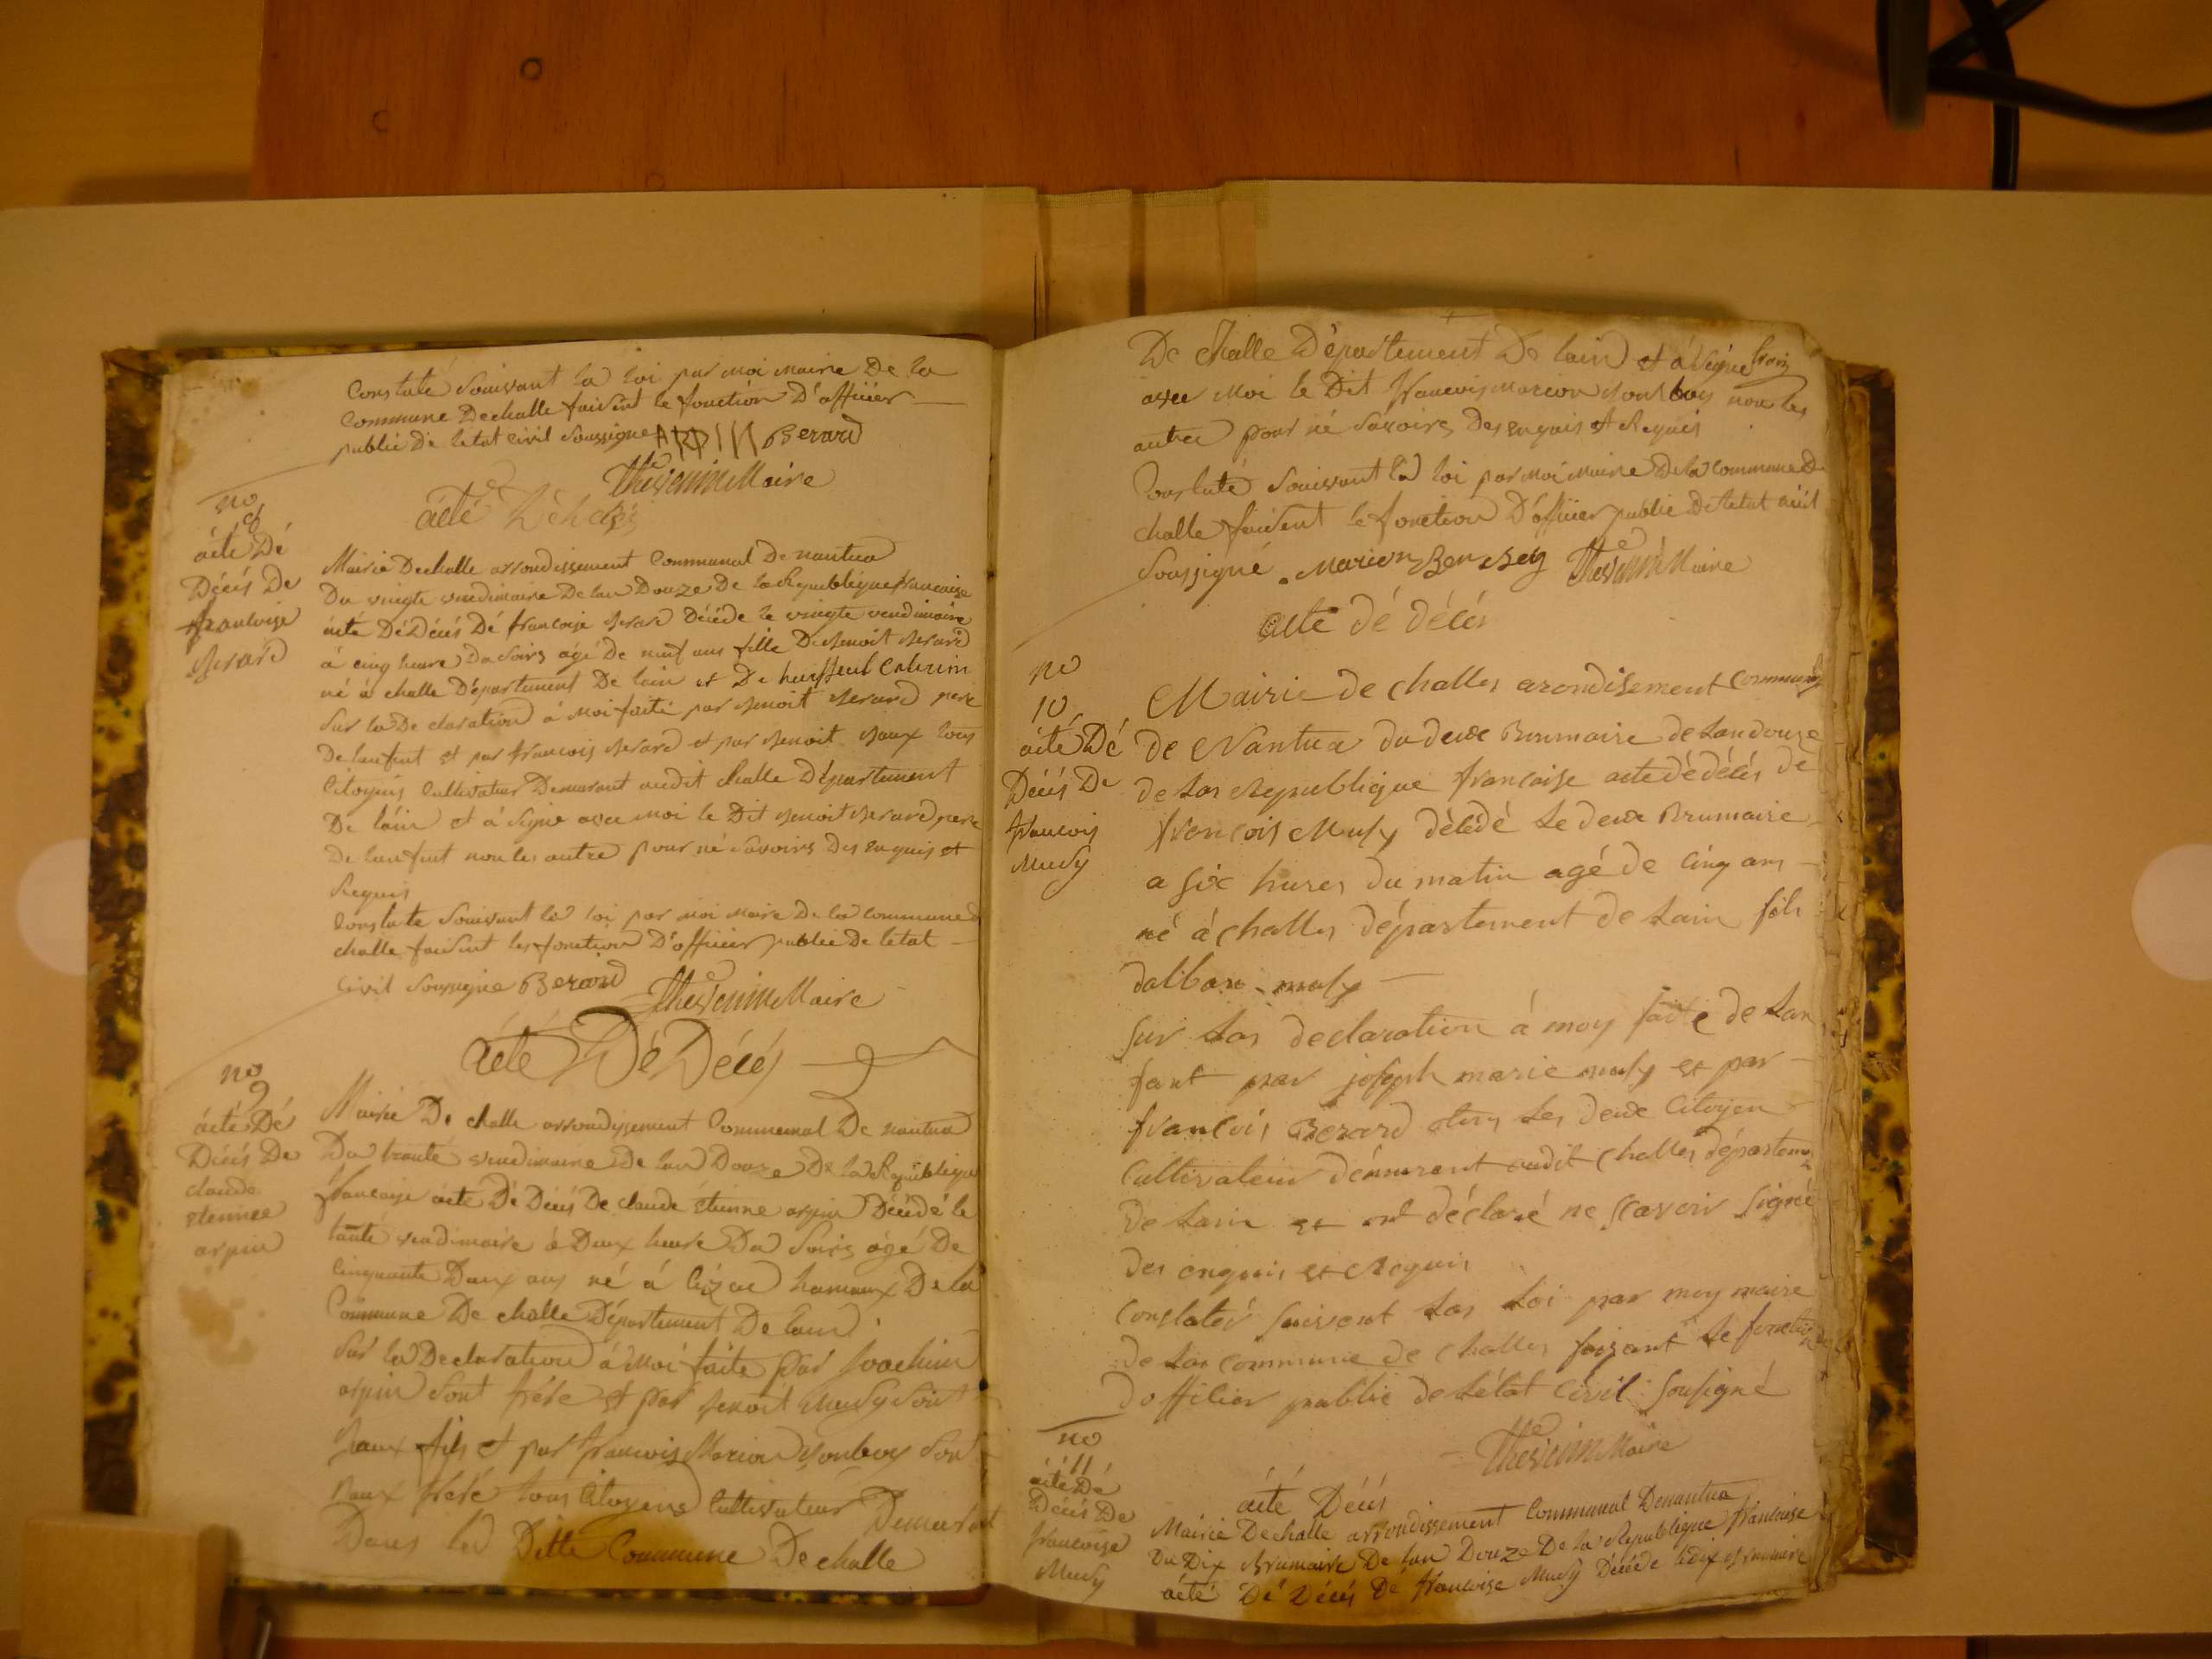 Constaté Souivant la loi par moi maire De la
Commune De challe faisent le fonction D'affiiier
public De letat Civil Soussigne Berard
Thevenin Maire
no
8
áete Dé
Décés De
francoise
Berard
áeté Dé
Mairie De challe arrondissement Communal De nantua
Du vingte vendimaire De lan Douze De la Republique francaise
áete Dé Décés Dé francoise Berard Décéde le vingte vendimaire
á cinq heure Du Soirs agé De neuf ans fille De Benoit Berard
né á challe Département De lain et De
Sur la De claration á Moi faite par Benoit Berard pere
De lanfent et par francois Berard et par Benoit tous
Citoyens Cultivateur Demeurant audit Challe Département
De láin et á Signe avec moi le Dit Benoit Berard pere
De lanfent non les autre pour né Savoirs Des enquis et
Requis
Constate Souivant la loi par moi Maire De la commune De
challe faisent les fonction D'affiiier public De letat
Civil Soussigne Berard Thevenin Maire
áeté Dé Décés
no
9
áeté Dé
Décés De
claude
etienne
arpin
Mairie De challe arrondissement Communal De nantua
Du trante vendimaire De lan Douze De la Republique
francaise áete Dé Décés De claude étienne arpin Décédé le
trante vendimaire á Deux heure Du Soirs ágé De
Cinquante Deux ans né á hamaux De la
Commune De challe Département De lain
Sur la Declaration á Moi faite par Joachim
arpin Sont frére et par Benoit Musy Sont
Baux fils et par francois Marion Sont
Baux frére tous Citoyens Cultivateur Demeurant
Dans la Ditte Commune De challe
De Challe Département De lain et á Signe
avec Moi le Dit francois Marion non les
autre pour né Savoirs Des enquis et Requis
Constaté Souivant la loi par Moi Maire De la commune De
challe faisent le fonction D'affiiier public De letat civil
Soussigné Marion Thevenin Maire
acte dé décés
no
10
áeté Dé
Décés De
francois
Musy
Mairie de challes arondisement communal
de Nantua du deux Brumaire de Lan douze
de Las Republique francaise acte dé décés de
francois Musy décédé le deux Brumaire
a six hures du matin agé de cinq ans
né á challes département de Lain fils
dalban musy
sur Las declaration á moy faite de Lan
fant par joseph marie musy et par
francois Berard les deux Citoyen
Cultivateur démurant audit challes département
de Lain et ont déclaré ne scavoir signé
des enquis et Requis
constatér suivent Las Loi par moy maire
de Las commune de challes faisant le fonction
d officier public de Létat Civil sousigné
Thevenin Maire
no
11
áeté Dé
Décés De
francoise
Musy
áeté Décés
Mairie De challe arrondissement Communal De nantua
Du Dix Brumaire De lan Douze De la Republique francaise
áeté Dé Décés Dé francoise Musy Décéde le dix Brumaire